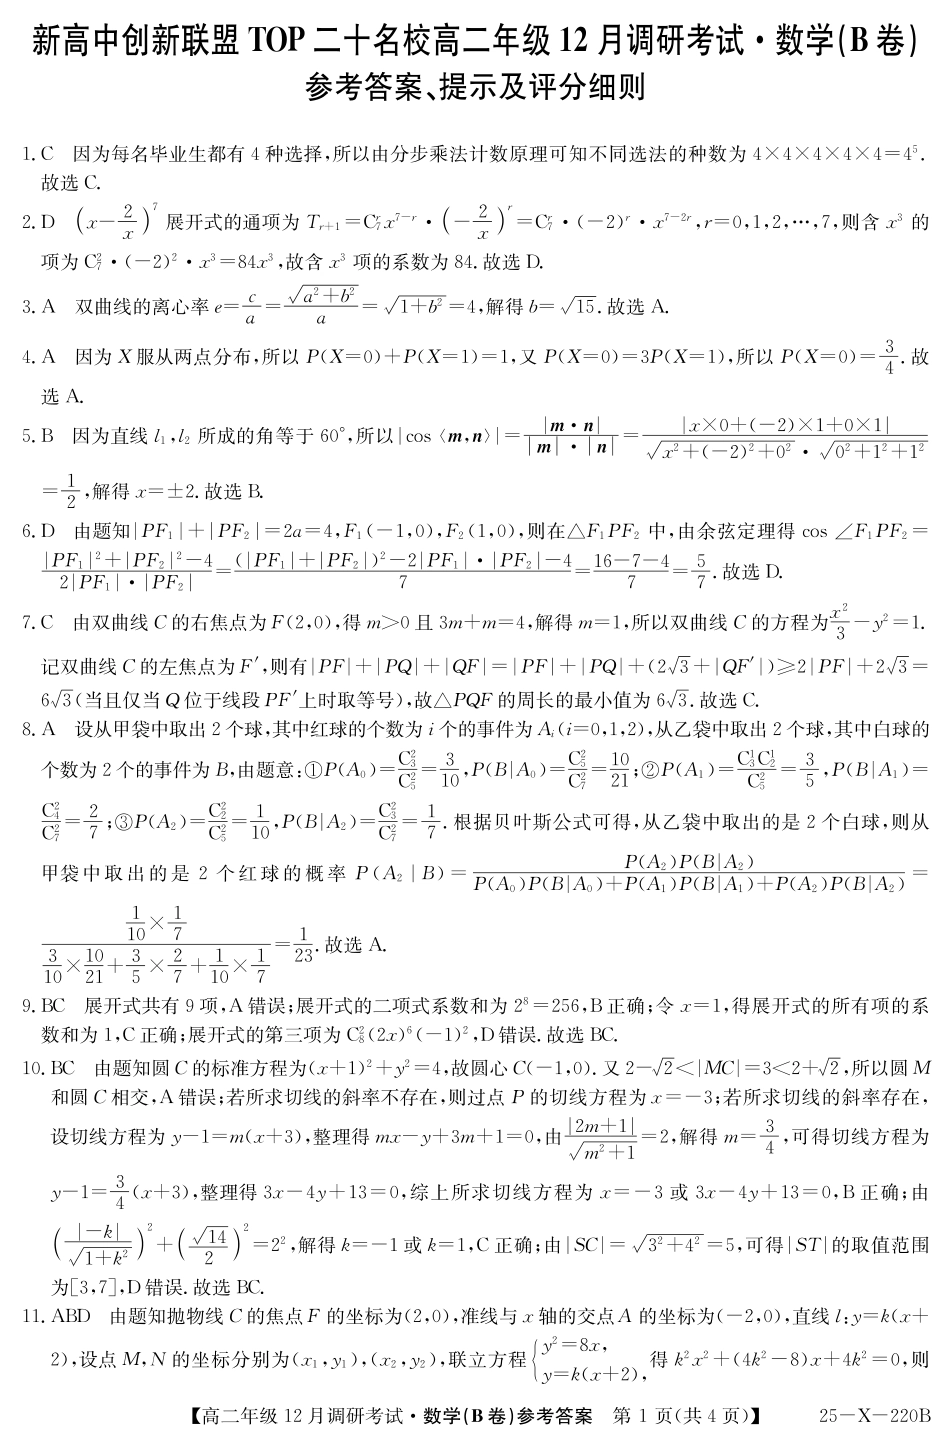 新高中创新联盟 TOP 二十名校高二年级 12 月调研考试·数学(B 卷)
参考答案、提示及评分细则
1. C　因为每名毕业生都有 4 种选择,所以由分步乘法计数原理可知不同选法的种数为 4×4×4×4×4=4⁵.
故选 C.
2. D　(x−2/x)⁷ 展开式的通项为 T_{r+1}=C₇^r x^{7−r}·(−2/x)^r=C₇^r·(−2)^r·x^{7−2r},r=0,1,2,…,7,则含 x³ 的
项为 C₇²·(−2)²·x³=84x³,故含 x³ 项的系数为 84. 故选 D.
3. A　双曲线的离心率 e=c/a=√(a²+b²)/a=√(1+b²)=4,解得 b=√15. 故选 A.
4. A　因为 X 服从两点分布,所以 P(X=0)+P(X=1)=1,又 P(X=0)=3P(X=1),所以 P(X=0)=3/4. 故
选 A.
5. B　因为直线 l₁,l₂ 所成的角等于 60°,所以|cos〈m,n〉|=|m·n|/(|m|·|n|)=|x×0+(−2)×1+0×1|/(√(x²+(−2)²+0²)·√(0²+1²+1²))
=1/2,解得 x=±2. 故选 B.
6. D　由题知|PF₁|+|PF₂|=2a=4,F₁(−1,0),F₂(1,0),则在△F₁PF₂ 中,由余弦定理得 cos ∠F₁PF₂=
(|PF₁|²+|PF₂|²−4)/(2|PF₁|·|PF₂|)=((|PF₁|+|PF₂|)²−2|PF₁|·|PF₂|−4)/7=(16−7−4)/7=5/7. 故选 D.
7. C　由双曲线 C 的右焦点为 F(2,0),得 m>0 且 3m+m=4,解得 m=1,所以双曲线 C 的方程为 x²/3−y²=1.
记双曲线 C 的左焦点为 F′,则有|PF|+|PQ|+|QF|=|PF|+|PQ|+(2√3+|QF′|)⩾2|PF|+2√3=
6√3(当且仅当 Q 位于线段 PF′上时取等号),故△PQF 的周长的最小值为 6√3. 故选 C.
8. A　设从甲袋中取出 2 个球,其中红球的个数为 i 个的事件为 Aᵢ(i=0,1,2),从乙袋中取出 2 个球,其中白球的
个数为 2 个的事件为 B,由题意:①P(A₀)=C₃²/C₅²=3/10,P(B|A₀)=C₅²/C₇²=10/21;②P(A₁)=C₃¹C₂¹/C₅²=3/5,P(B|A₁)=
C₄²/C₇²=2/7;③P(A₂)=C₂²/C₅²=1/10,P(B|A₂)=C₃²/C₇²=1/7. 根据贝叶斯公式可得,从乙袋中取出的是 2 个白球,则从
甲袋中取出的是 2 个红球的概率 P(A₂|B)=P(A₂)P(B|A₂)/(P(A₀)P(B|A₀)+P(A₁)P(B|A₁)+P(A₂)P(B|A₂))=
(1/10×1/7)/(3/10×10/21+3/5×2/7+1/10×1/7)=1/23. 故选 A.
9. BC　展开式共有 9 项,A 错误;展开式的二项式系数和为 2⁸=256,B 正确;令 x=1,得展开式的所有项的系
数和为 1,C 正确;展开式的第三项为 C₈²(2x)⁶(−1)²,D 错误. 故选 BC.
10. BC　由题知圆 C 的标准方程为(x+1)²+y²=4,故圆心 C(−1,0). 又 2−√2<|MC|=3<2+√2,所以圆 M
和圆 C 相交,A 错误;若所求切线的斜率不存在,则过点 P 的切线方程为 x=−3;若所求切线的斜率存在,
设切线方程为 y−1=m(x+3),整理得 mx−y+3m+1=0,由|2m+1|/√(m²+1)=2,解得 m=3/4,可得切线方程为
y−1=3/4(x+3),整理得 3x−4y+13=0,综上所求切线方程为 x=−3 或 3x−4y+13=0,B 正确;由
(|−k|/√(1+k²))²+(√14/2)²=2²,解得 k=−1 或 k=1,C 正确;由|SC|=√(3²+4²)=5,可得|ST|的取值范围
为[3,7],D 错误. 故选 BC.
11. ABD　由题知抛物线 C 的焦点 F 的坐标为(2,0),准线与 x 轴的交点 A 的坐标为(−2,0),直线 l:y=k(x+
2),设点 M,N 的坐标分别为(x₁,y₁),(x₂,y₂),联立方程{y²=8x, y=k(x+2), 得 k²x²+(4k²−8)x+4k²=0,则
【高二年级 12 月调研考试·数学(B 卷)参考答案　第 1 页(共 4 页)】　25−X−220B